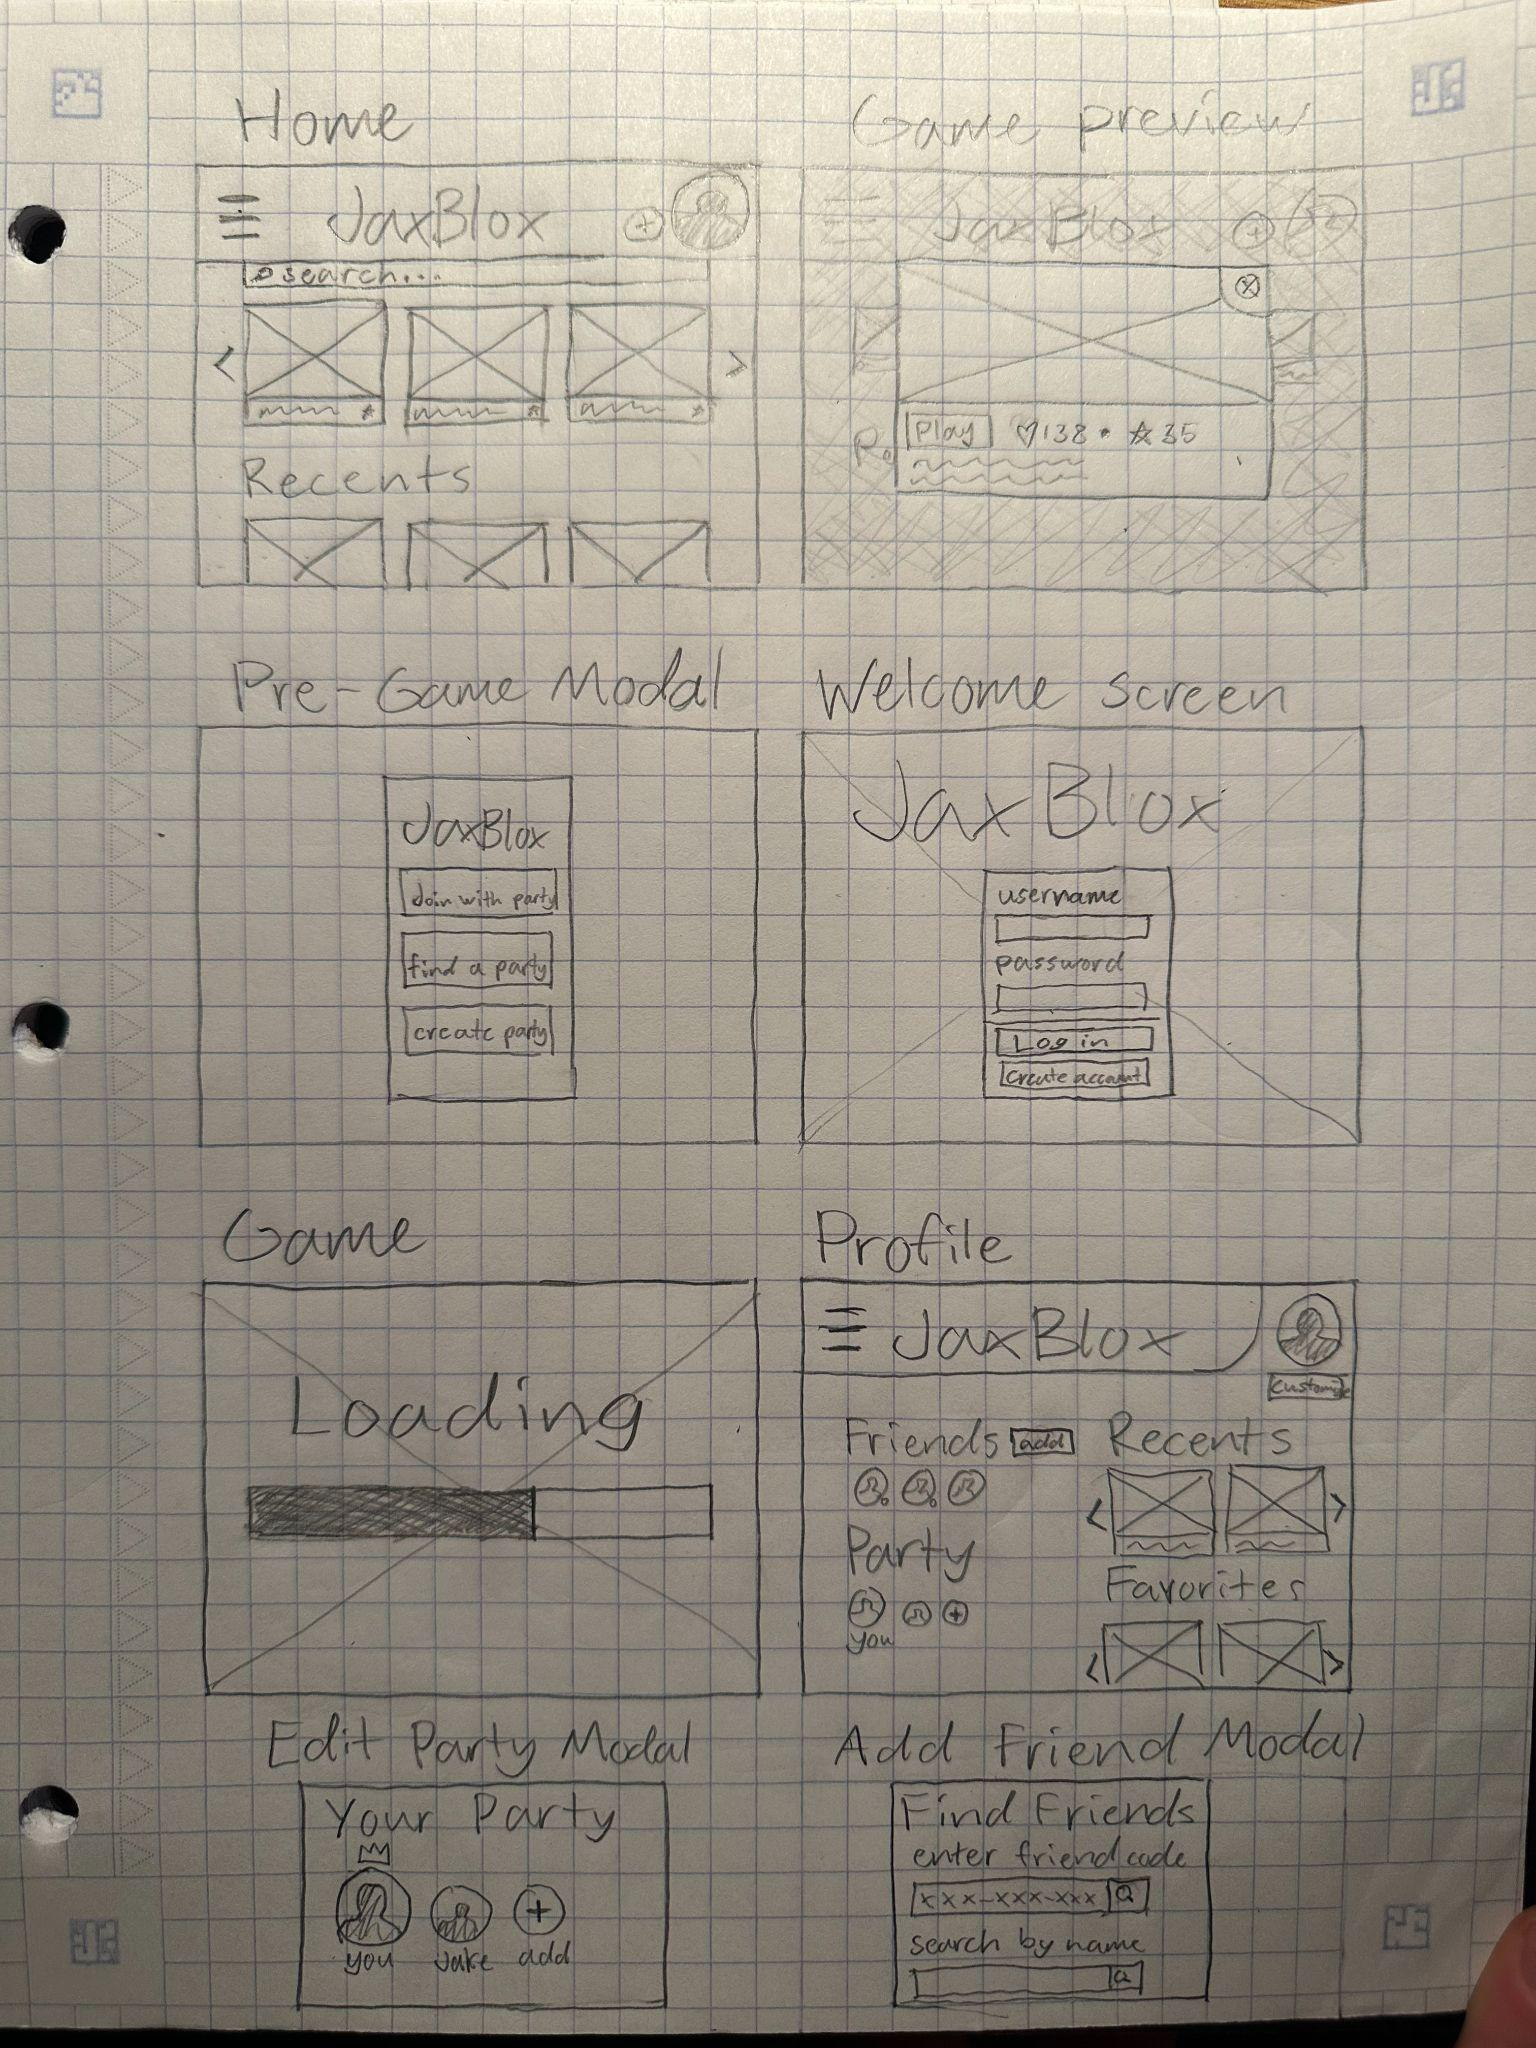 Home
JaxBlox
search...
Recents
Game preview
JaxBlox
Play 138 • 35
Pre-Game Modal
JaxBlox
Join with party
find a party
create party
Welcome screen
JaxBlox
username
password
Log in
create account
Game
Loading
Profile
JaxBlox
customize
Friends add
Party
you
Recents
Favorites
Edit Party Modal
Your Party
you Jake add
Add Friend Modal
Find Friends
enter friend code
xxx-xxx-xxx
search by name